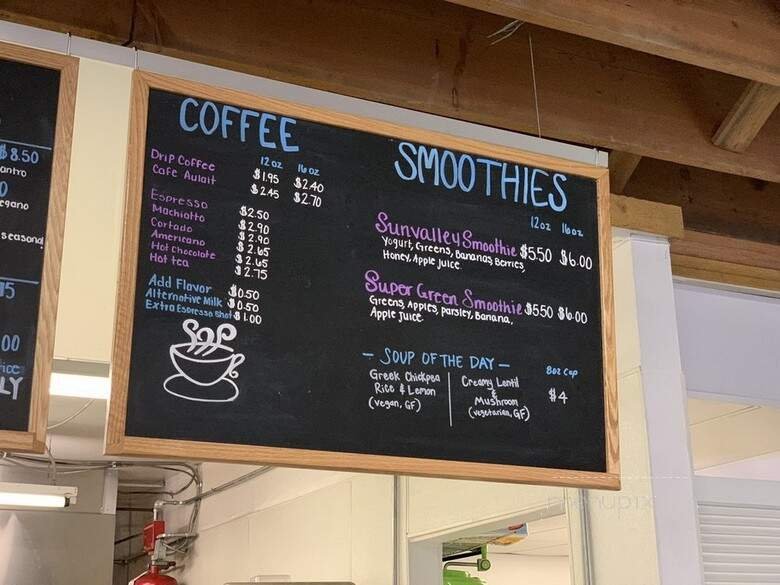 $8.50
COFFEE
12 oz 16 oz
Drip Coffee $1.95 $2.40
Cafe Aulait $2.45 $2.70
Espresso $2.50
Machiatto $2.90
Cortado $2.90
Americano $2.65
Hot Chocolate $2.65
Hot tea $2.75
Add Flavor $0.50
Alternative Milk $0.50
Extra Espresso Shot $1.00
SMOOTHIES
12oz 16oz
Sunvalley Smoothie $5.50 $6.00
Yogurt, Greens, Bananas, Berries,
Honey, Apple juice.
Super Green Smoothie $5.50 $6.00
Greens, Apples, parsley, Banana,
Apple juice.
- SOUP OF THE DAY -
8oz Cup
$4
Greek Chickpea
Rice & Lemon
(vegan, GF)
Creamy Lentil
&
Mushroom
(vegetarian, GF)
menupix